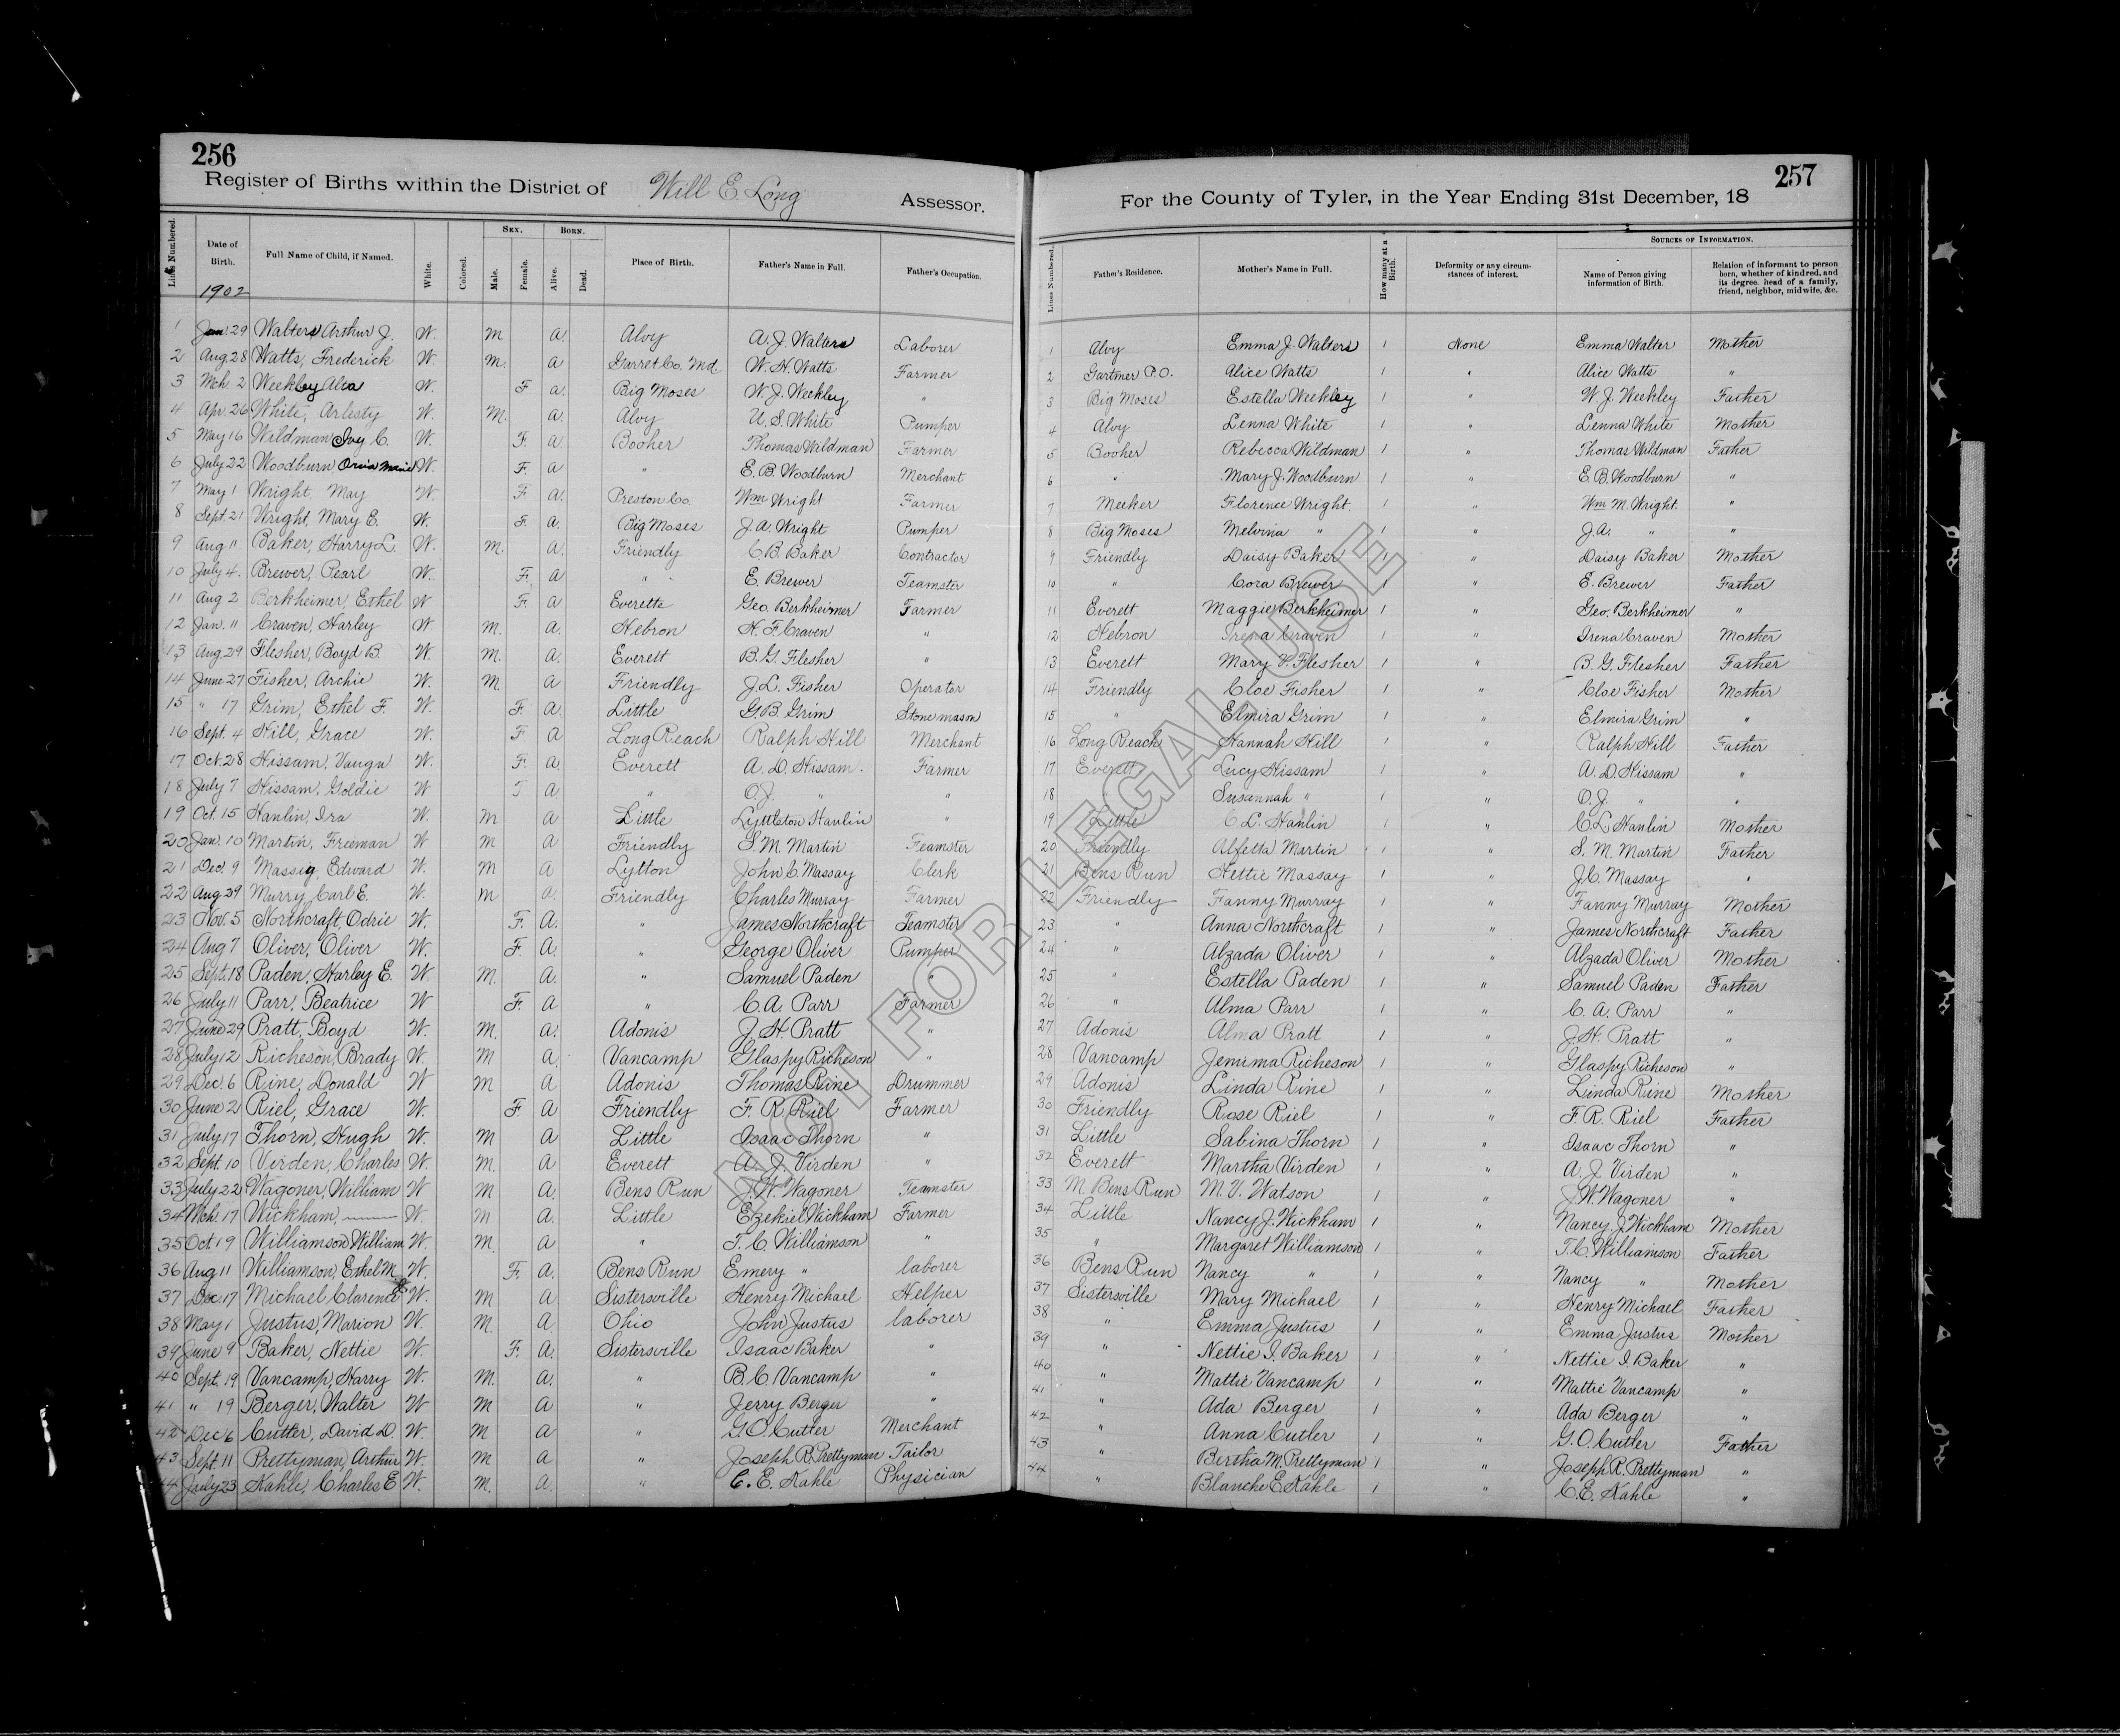 256
Register of Births within the District of Will E. Long Assessor.
Lines Numbered. Date of Birth. Full Name of Child, if Named. White. Colored. Sex. Male. Female. Born. Alive. Dead. Place of Birth. Father's Name in Full. Father's Occupation.
1902
1 Jan 29 Walters Arthur J. W. M a. Alvy A. J. Walters Laborer
2 Aug. 28 Watts, Frederick W. M. a Garret Co. Md. W. H. Watts Farmer
3 Mch. 2 Weekley Alta W. F a. Big Moses W. J. Weekley "
4 Apr. 26 White, Arlesty W. M. a. Alvy U. S. White Pumper
5 May 16 Wildman Ivy C. W. F. a. Booher Thomas Wildman Farmer
6 July 22 Woodburn Marie W. F. a " E. B. Woodburn Merchant
7 May 1 Wright, May W. F a. Preston Co. Wm Wright Farmer
8 Sept. 21 Wright, Mary E. W. F. a. Big Moses J. A. Wright Pumper
9 Aug 11 Baker, Harry L. W. M. a. Friendly C. B. Baker Contractor
10 July 4. Brewer, Pearl W. F. a " E. Brewer Teamster
11 Aug 2 Berkheimer, Ethel W F. a Everette Geo. Berkheimer Farmer
12 Jan. 11 Craven, Harley W M. a. Hebron H. F. Craven "
13 Aug. 29 Flesher, Boyd B. W. M. a. Everett B. G. Flesher "
14 June 27 Fisher, Archie W. M. a Friendly J. L. Fisher Operator
15 " 17 Grim, Ethel F. W. F. a. Little G. B. Grim Stone mason
16 Sept. 4 Hill, Grace W. F a Long Reach Ralph Hill Merchant
17 Oct. 28 Hissam, Vaugn W. F. a Everett A. D. Hissam. Farmer
18 July 7 Hissam, Goldie W F a " O. J. " "
19 Oct. 15 Hanlin, Ira W. M a Little Lyttleton Hanlin "
20 Jan. 10 Martin, Freeman W M a Friendly S. M. Martin Teamster
21 Dec. 9 Massig, Edward W. M a Lytton John C. Massay Clerk
22 Aug 29 Murry, Carl E. W. M a. Friendly Charles Murray Farmer
23 Nov. 5 Northcraft, Odrie W. F. a. " James Northcraft Teamster
24 Aug 7 Oliver, Oliver W. F. a. " George Oliver Pumper
25 Sept. 18 Paden, Harley E. W. M. a. " Samuel Paden "
26 July 11 Parr, Beatrice W F. a " C. A. Parr Farmer
27 June 29 Pratt, Boyd W. M. a. Adonis J. H. Pratt "
28 July 12 Richeson, Brady W. M a. Vancamp Glaspy Richeson "
29 Dec. 6 Rine, Donald W M a Adonis Thomas Rine Drummer
30 June 21 Riel, Grace W. F. a Friendly F. R. Riel Farmer
31 July 17 Thorn, Hugh W. M a Little Isaac Thorn "
32 Sept. 10 Virden, Charles W. M. a Everett A. J. Virden "
33 July 22 Wagoner, William W M a. Bens Run J. W. Wagoner Teamster
34 Mch. 17 Wickham, —— W. M a. Little Ezekiel Wickham Farmer
35 Oct 19 Williamson William W. M. a " T. C. Williamson "
36 Aug 11 Williamson, Ethel M. W. F. a. Bens Run Emery " laborer
37 Dec. 17 Michael Clarence W. M a Sistersville Henry Michael Helper
38 May 1 Justus, Marion W. M. a Ohio John Justus laborer
39 June 9 Baker, Nettie W. F. a. Sistersville Isaac Baker "
40 Sept. 19 Vancamp, Harry W. M. a. " B. C. Vancamp "
41 " 19 Berger, Walter W M a " Jerry Berger "
42 Dec 6 Cutter, David D. W. M a " G. O. Cutter Merchant
43 Sept. 11 Prettyman, Arthur W. M a " Joseph R. Prettyman Tailor
44 July 23 Kahle, Charles E W. M. a. " C. E. Kahle Physician
257
For the County of Tyler, in the Year Ending 31st December, 18
Lines Numbered. Father's Residence. Mother's Name in Full. How many at a Birth. Deformity or any circumstances of interest. Sources of Information. Name of Person giving information of Birth. Relation of informant to person born, whether of kindred, and its degree, head of a family, friend, neighbor, midwife, &c.
1 Alvy Emma J. Walters 1 None Emma Walter Mother
2 Gartmer P.O. Alice Watts 1 " Alice Watts "
3 Big Moses Estella Weekley 1 " W. J. Weekley Father
4 Alvy Lenna White 1 " Lenna White Mother
5 Booher Rebecca Wildman 1 " Thomas Wildman Father
6 " Mary J. Woodburn 1 " E. B. Woodburn "
7 Meeker Florence Wright. 1 " Wm M. Wright. "
8 Big Moses Melvina " 1 " J. A. " "
9 Friendly Daisy Baker 1 " Daisy Baker Mother
10 " Cora Brewer 1 " E. Brewer Father
11 Everett Maggie Berkheimer 1 " Geo. Berkheimer "
12 Hebron Irena Craven 1 " Irena Craven Mother
13 Everett Mary V. Flesher 1 " B. G. Flesher Father
14 Friendly Cloe Fisher 1 " Cloe Fisher Mother
15 " Elmira Grim 1 " Elmira Grim "
16 Long Reach Hannah Hill 1 " Ralph Hill Father
17 Everett Lucy Hissam 1 " A. D. Hissam "
18 " Susannah " 1 " O. J. " "
19 Little C. L. Hanlin 1 " C. L. Hanlin Mother
20 Friendly Alfetta Martin 1 " S. M. Martin Father
21 Bens Run Hettie Massay 1 " J. C. Massay "
22 Friendly Fanny Murray 1 " Fanny Murray Mother
23 " Anna Northcraft 1 " James Northcraft Father
24 " Alzada Oliver 1 " Alzada Oliver Mother
25 " Estella Paden 1 " Samuel Paden Father
26 " Alma Parr 1 " C. A. Parr "
27 Adonis Alma Pratt 1 " J. H. Pratt "
28 Vancamp Jemima Richeson 1 " Glaspy Richeson "
29 Adonis Linda Rine 1 " Linda Rine Mother
30 Friendly Rose Riel 1 " F. R. Riel Father
31 Little Sabina Thorn 1 " Isaac Thorn "
32 Everett Martha Virden 1 " A. J. Virden "
33 M. Bens Run M. V. Watson 1 " J. W. Wagoner "
34 Little Nancy J. Wickham 1 " Nancy J. Wickham Mother
35 " Margaret Williamson 1 " T. C. Williamson Father
36 Bens Run Nancy " 1 " Nancy " Mother
37 Sistersville Mary Michael 1 " Henry Michael Father
38 " Emma Justus 1 " Emma Justus Mother
39 " Nettie I. Baker 1 " Nettie I. Baker "
40 " Mattie Vancamp 1 " Mattie Vancamp "
41 " Ada Berger 1 " Ada Berger "
42 " Anna Cutler 1 " G. O. Cutler Father
43 " Bertha M. Prettyman 1 " Joseph R. Prettyman "
44 " Blanche E. Kahle 1 " C. E. Kahle "
NOT FOR LEGAL USE